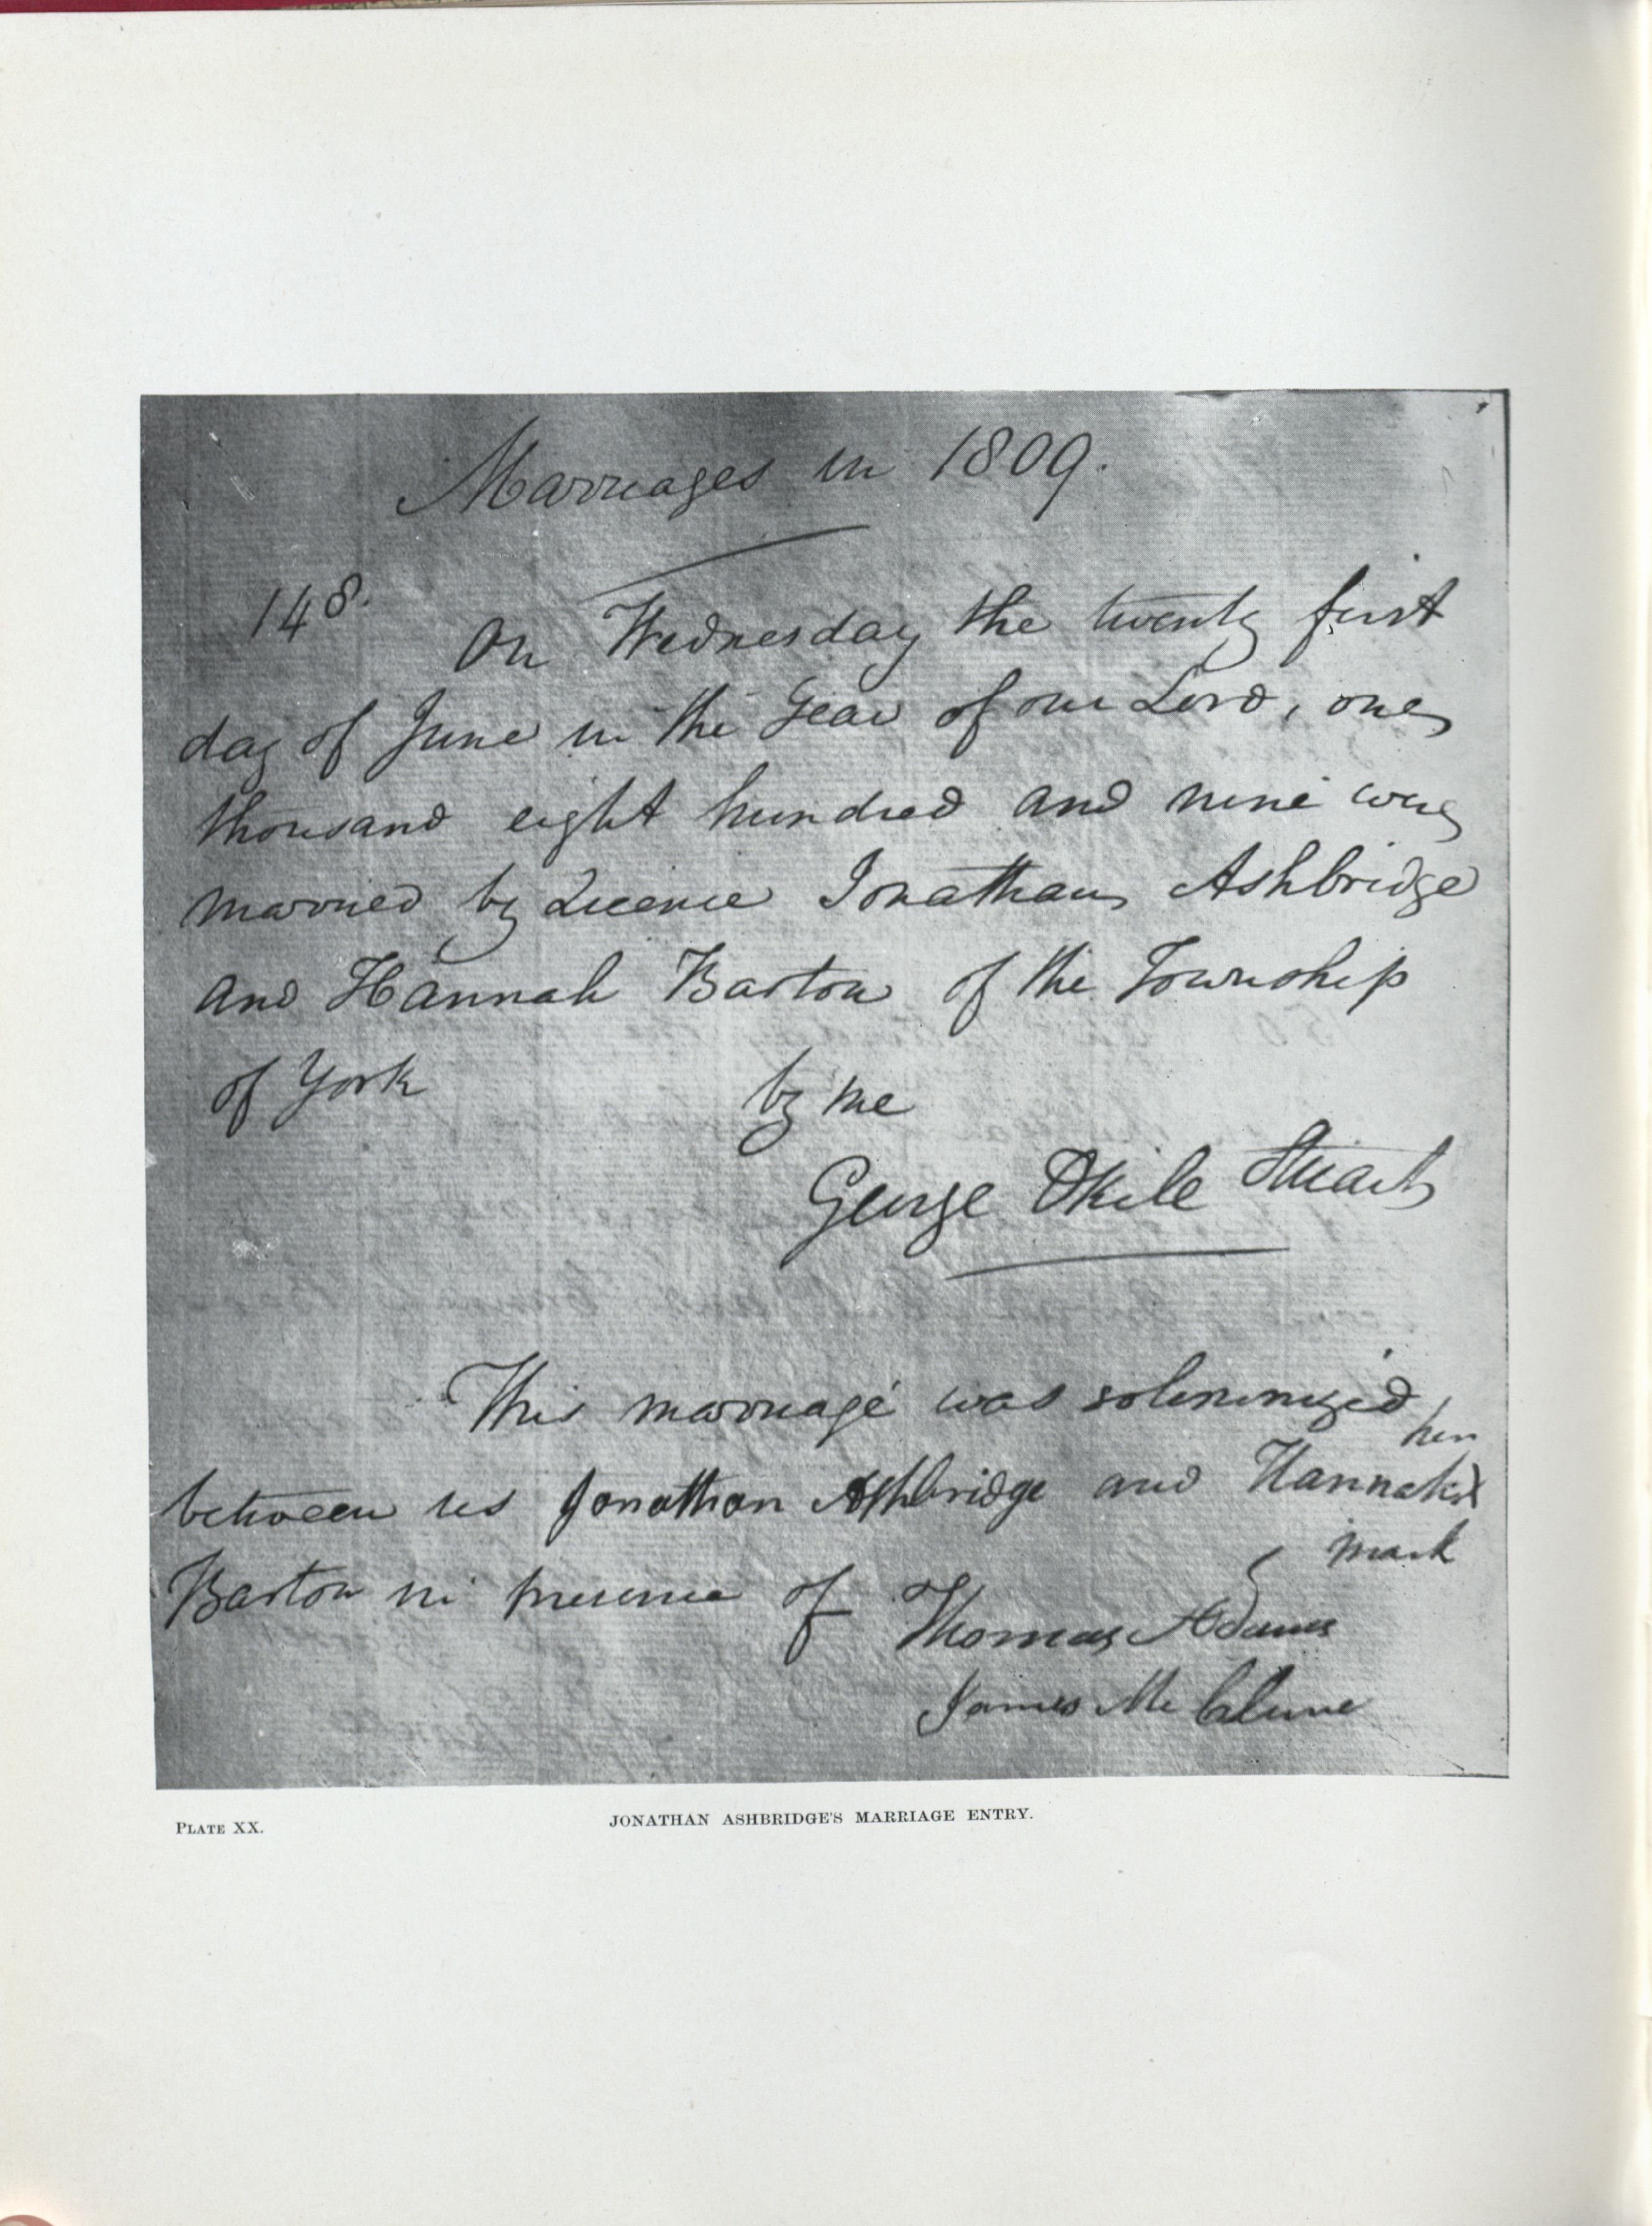 Marriages in 1809.
148.
On Wednesday the twenty first
day of June in the Year of our Lord, one
thousand eight hundred and nine were
married by Licence Jonathan Ashbridge
and Hannah Barton of the Township
of York by me
George Okile Stuart
This marriage was solemnized
her
between us Jonathan Ashbridge and Hannah X
mark
Barton in presence of Thomas Adams
James Mc Clure
PLATE XX.
JONATHAN ASHBRIDGE'S MARRIAGE ENTRY.